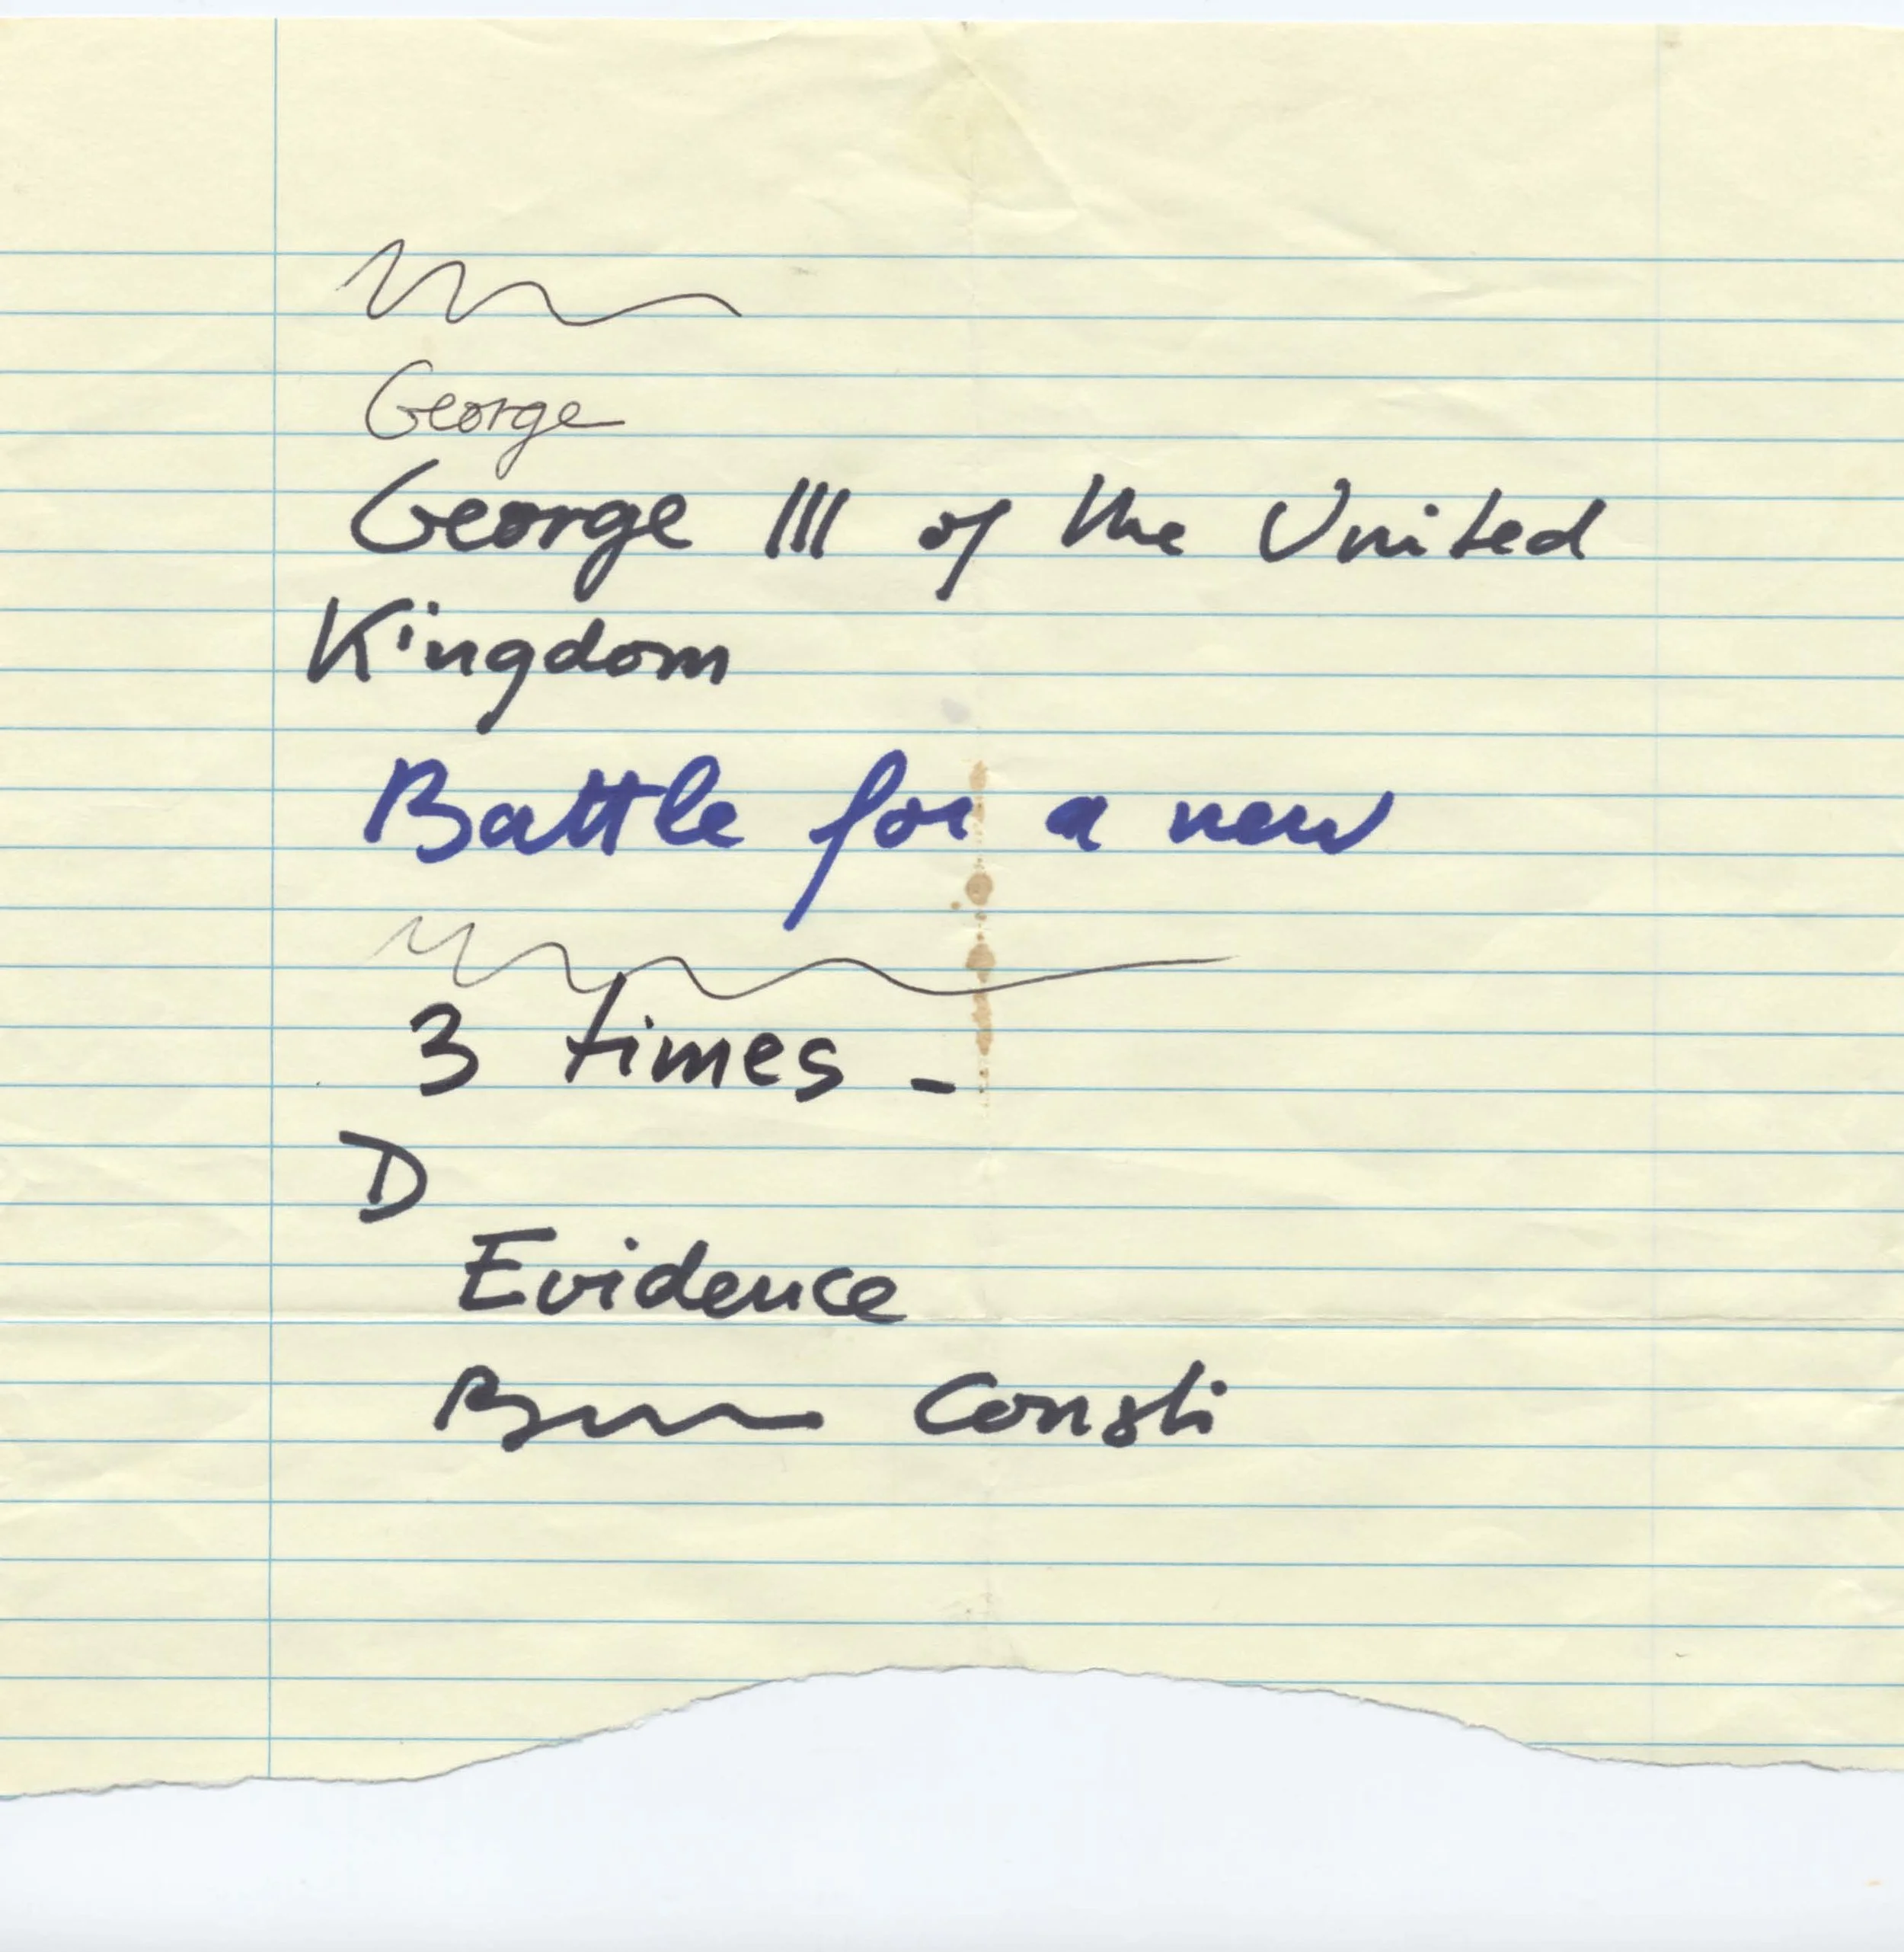 George
George III of the United
Kingdom
Battle for a new
3 times -
D
Evidence
Consti